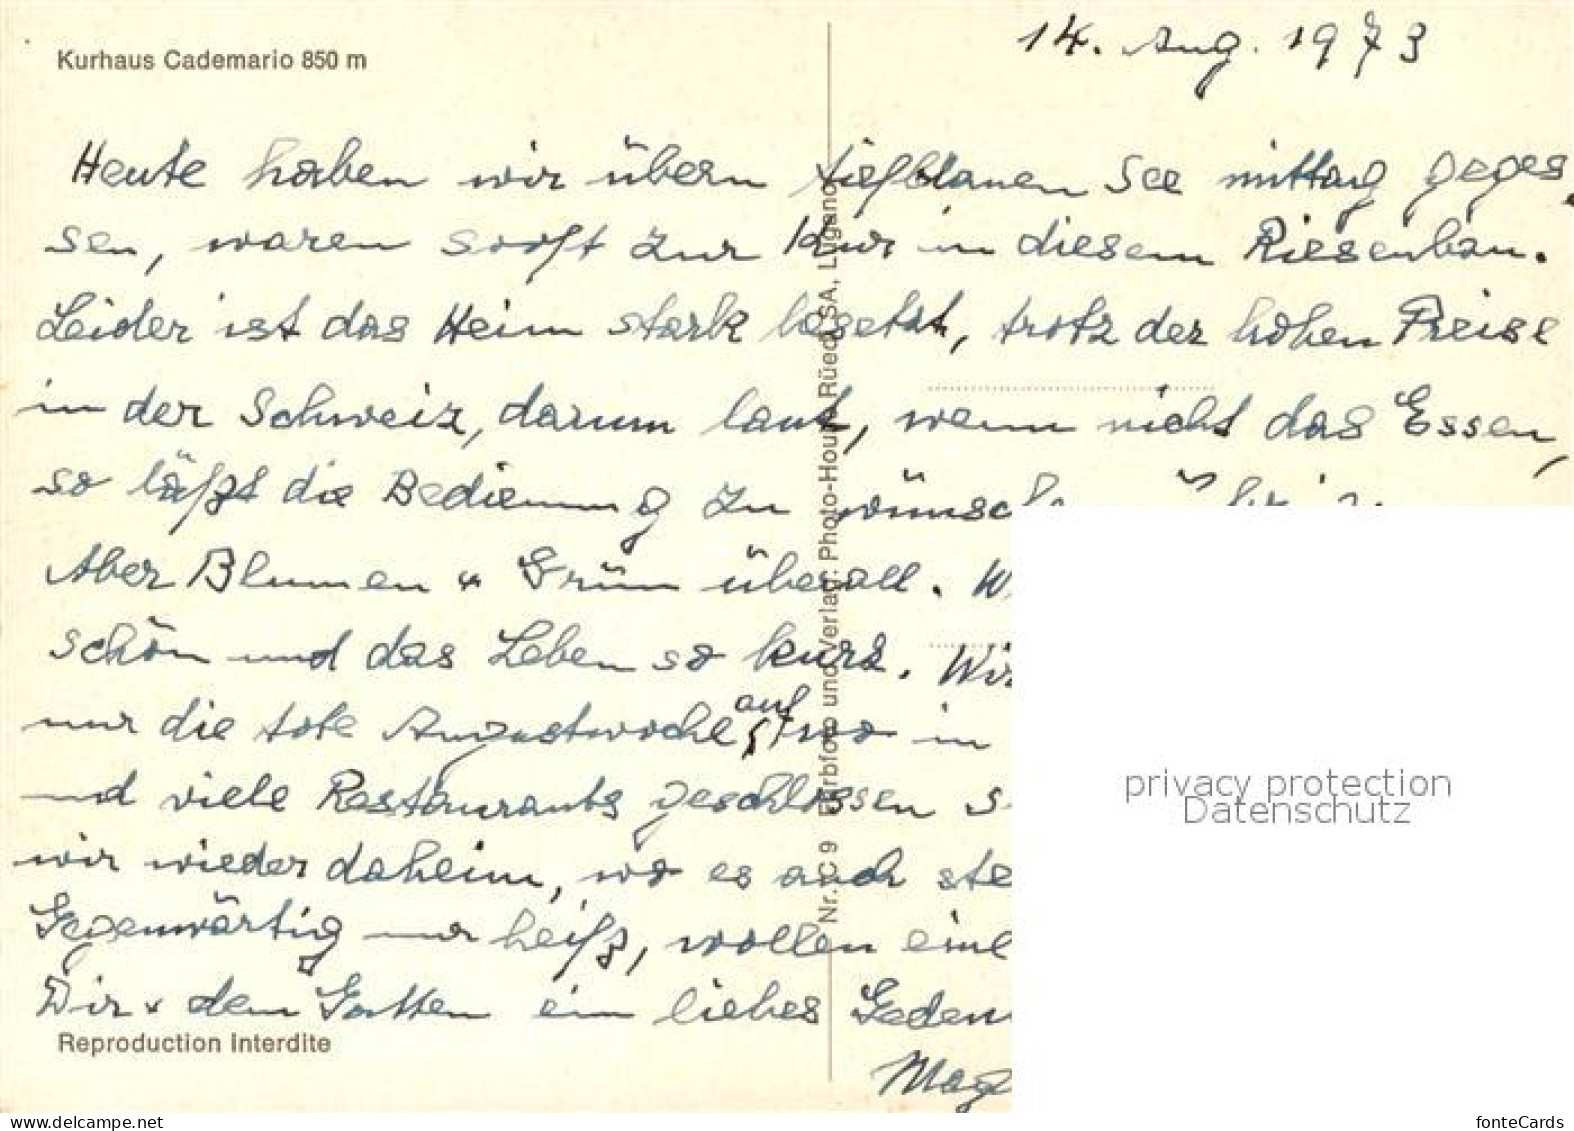 Kurhaus Cademario 850 m
14. Aug. 1973
Heute haben wir übern tiefblauen See mittag geges
sen, waren sooft zur Kur in diesem Riesenbau.
Leider ist das Heim stark besetzt, trotz der hohen Preise
in der Schweiz, darum laut, wenn nicht das Essen,
so läßt die Bedienung zu
Aber Blumen u Grün überall.
schön und das Leben so kurz. Wir
nur die tote Augustwoche auf, wo in
und viele Restaurants geschlossen
wir wieder daheim, wo es auch
Gegenwärtig nur heiß, wollen
Dir u dem Gatten ein liebes
Reproduction interdite
Nr. C 9 Farbfoto und Verlag: Photo-House Rüedi SA, Lugano
privacy protection
Datenschutz
fonteCards